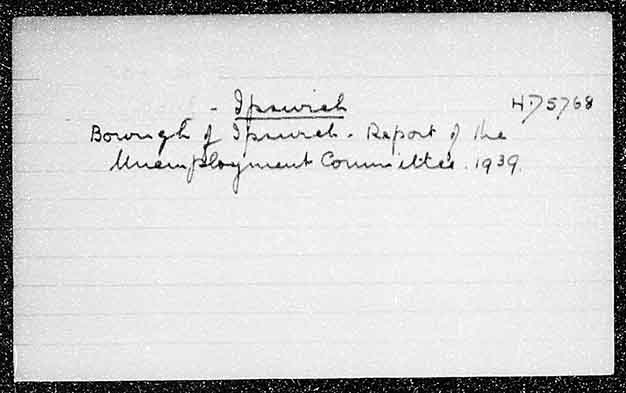 - Ipswich HD5768
Borough of Ipswich. Report of the
Unemployment Committee. 1939.